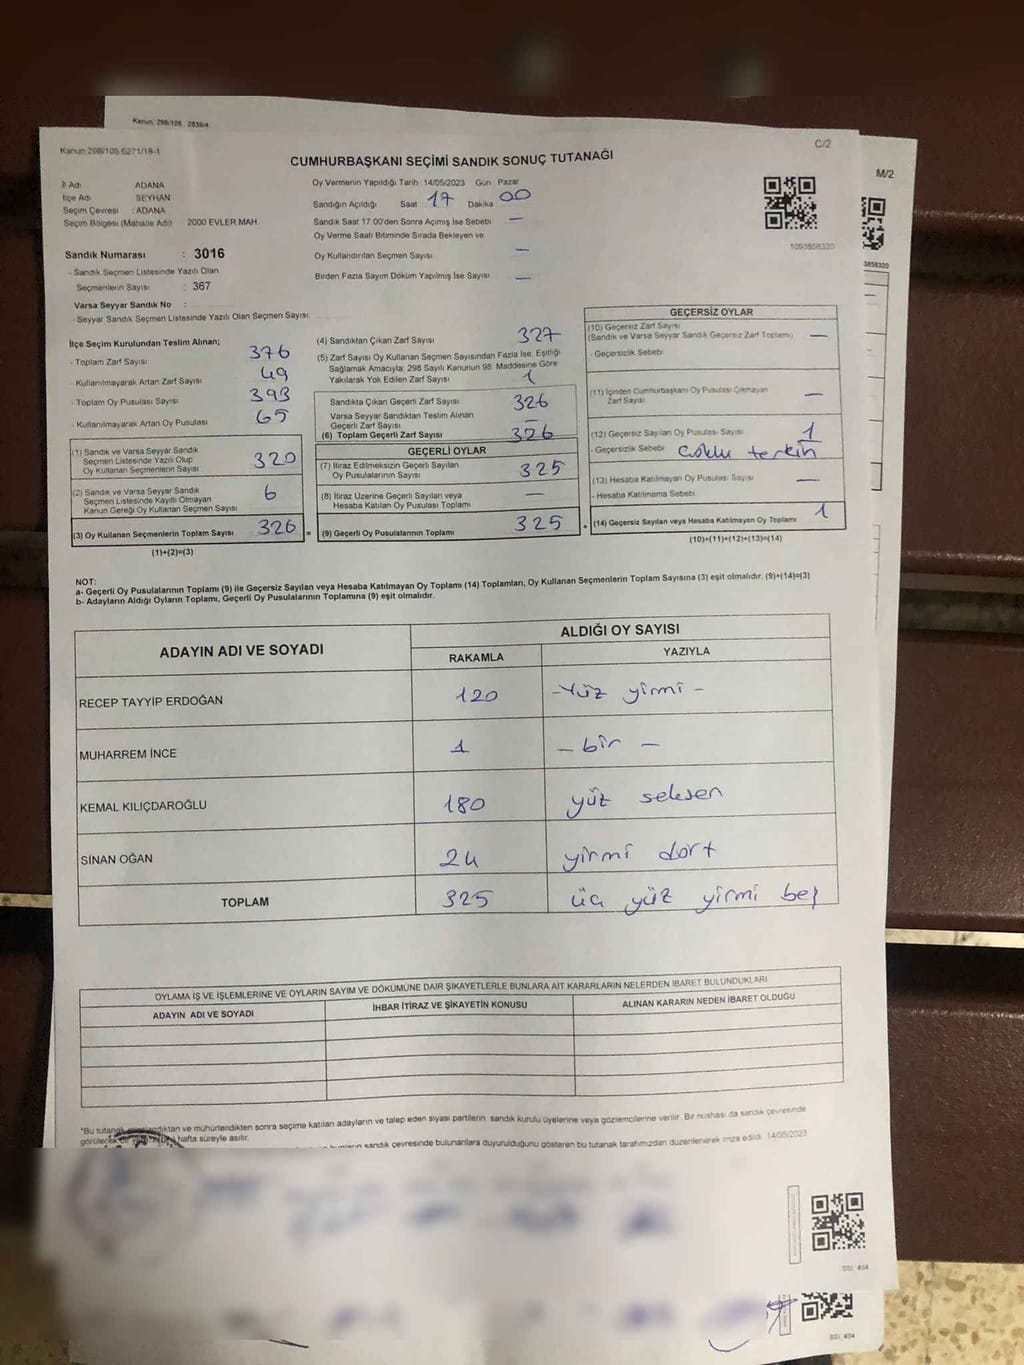 Kanun: 298/105 2839/4
Kanun 298/105,6271/18-1
C/2
M/2
CUMHURBAŞKANI SEÇİMİ SANDIK SONUÇ TUTANAĞI
İl Adı ADANA
İlçe Adı SEYHAN
Seçim Çevresi : ADANA
Seçim Bölgesi (Mahalle Adı) 2000 EVLER MAH.
Sandık Numarası : 3016
- Sandık Seçmen Listesinde Yazılı Olan
Seçmenlerin Sayısı : 367
Varsa Seyyar Sandık No :
- Seyyar Sandık Seçmen Listesinde Yazılı Olan Seçmen Sayısı:
Oy Vermenin Yapıldığı Tarih :14/05/2023 Gün Pazar
Sandığın Açıldığı Saat 17 Dakika 00
Sandık Saat 17.00'den Sonra Açımış İse Sebebi —
Oy Verme Saati Bitiminde Sırada Bekleyen ve
Oy Kullandırılan Seçmen Sayısı —
Birden Fazla Sayım Döküm Yapılmış İse Sayısı —
1093858330
3858330
İlçe Seçim Kurulundan Teslim Alınan;
- Toplam Zarf Sayısı 376
- Kullanılmayarak Artan Zarf Sayısı 49
- Toplam Oy Pusulası Sayısı 393
- Kullanılmayarak Artan Oy Pusulası 65
(1) Sandık ve Varsa Seyyar Sandık
Seçmen Listesinde Yazılı Olup
Oy Kullanan Seçmenlerin Sayısı 320
(2) Sandık ve Varsa Seyyar Sandık
Seçmen Listesinde Kayıtlı Olmayan
Kanun Gereği Oy Kullanan Seçmen Sayısı 6
(3) Oy Kullanan Seçmenlerin Toplam Sayısı 326 =
(1)+(2)=(3)
(4) Sandıktan Çıkan Zarf Sayısı 327
(5) Zarf Sayısı Oy Kullanan Seçmen Sayısından Fazla İse, Eşitliği
Sağlamak Amacıyla; 298 Sayılı Kanunun 98. Maddesine Göre
Yakılarak Yok Edilen Zarf Sayısı 1
Sandıkta Çıkan Geçerli Zarf Sayısı 326
Varsa Seyyar Sandıktan Teslim Alınan
Geçerli Zarf Sayısı —
(6) Toplam Geçerli Zarf Sayısı 326
GEÇERLİ OYLAR
(7) İtiraz Edilmeksizin Geçerli Sayılan
Oy Pusulalarının Sayısı 325
(8) İtiraz Üzerine Geçerli Sayılan veya
Hesaba Katılan Oy Pusulası Toplamı —
(9) Geçerli Oy Pusulalarının Toplamı 325 +
GEÇERSİZ OYLAR
(10) Geçersiz Zarf Sayısı
(Sandık ve Varsa Seyyar Sandık Geçersiz Zarf Toplamı) —
- Geçersizlik Sebebi:
(11) İçinden Cumhurbaşkanı Oy Pusulası Çıkmayan
Zarf Sayısı —
(12) Geçersiz Sayılan Oy Pusulası Sayısı 1
- Geçersizlik Sebebi çoklu tercih
(13) Hesaba Katılmayan Oy Pusulası Sayısı —
- Hesaba Katılmama Sebebi
(14) Geçersiz Sayılan veya Hesaba Katılmayan Oy Toplamı 1
(10)+(11)+(12)+(13)=(14)
NOT:
a- Geçerli Oy Pusulalarının Toplamı (9) ile Geçersiz Sayılan veya Hesaba Katılmayan Oy Toplamı (14) Toplamları, Oy Kullanan Seçmenlerin Toplam Sayısına (3) eşit olmalıdır. (9)+(14)=(3)
b- Adayların Aldığı Oyların Toplamı, Geçerli Oy Pusulalarının Toplamına (9) eşit olmalıdır.
ADAYIN ADI VE SOYADI ALDIĞI OY SAYISI
RAKAMLA YAZIYLA
RECEP TAYYİP ERDOĞAN 120 -Yüz yirmi -
MUHARREM İNCE 1 - bir -
KEMAL KILIÇDAROĞLU 180 yüz seksen
SİNAN OĞAN 24 yirmi dört
TOPLAM 325 üç yüz yirmi beş
OYLAMA İŞ VE İŞLEMLERİNE VE OYLARIN SAYIM VE DÖKÜMÜNE DAİR ŞİKAYETLERLE BUNLARA AİT KARARLARIN NELERDEN İBARET BULUNDUKLARI
ADAYIN ADI VE SOYADI İHBAR İTİRAZ VE ŞİKAYETİN KONUSU ALINAN KARARIN NEDEN İBARET OLDUĞU
*Bu tutanak ve mühürlendikten sonra seçime katılan adayların ve talep eden siyasi partilerin sandık kurulu üyelerine veya gözlemcilerine verilir. Bir nüshası da sandık çevresinde
hafta süreyle asılır.
sandık çevresinde bulunanlara duyurulduğunu gösteren bu tutanak tarafımızdan düzenlenerek imza edildi. 14/05/2023